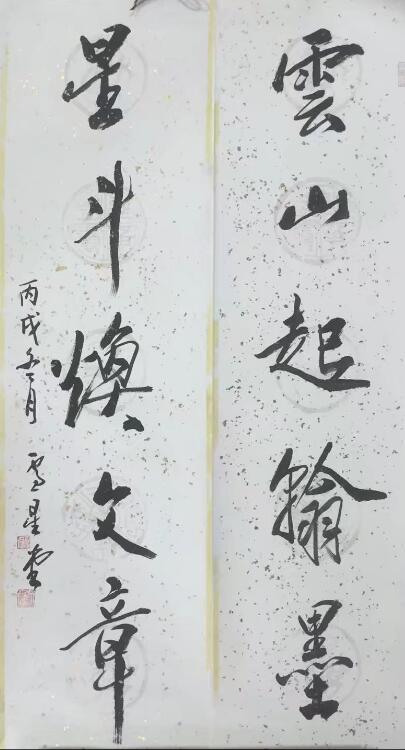 雲山起翰墨
星斗煥文章
丙戌年 月
星堂